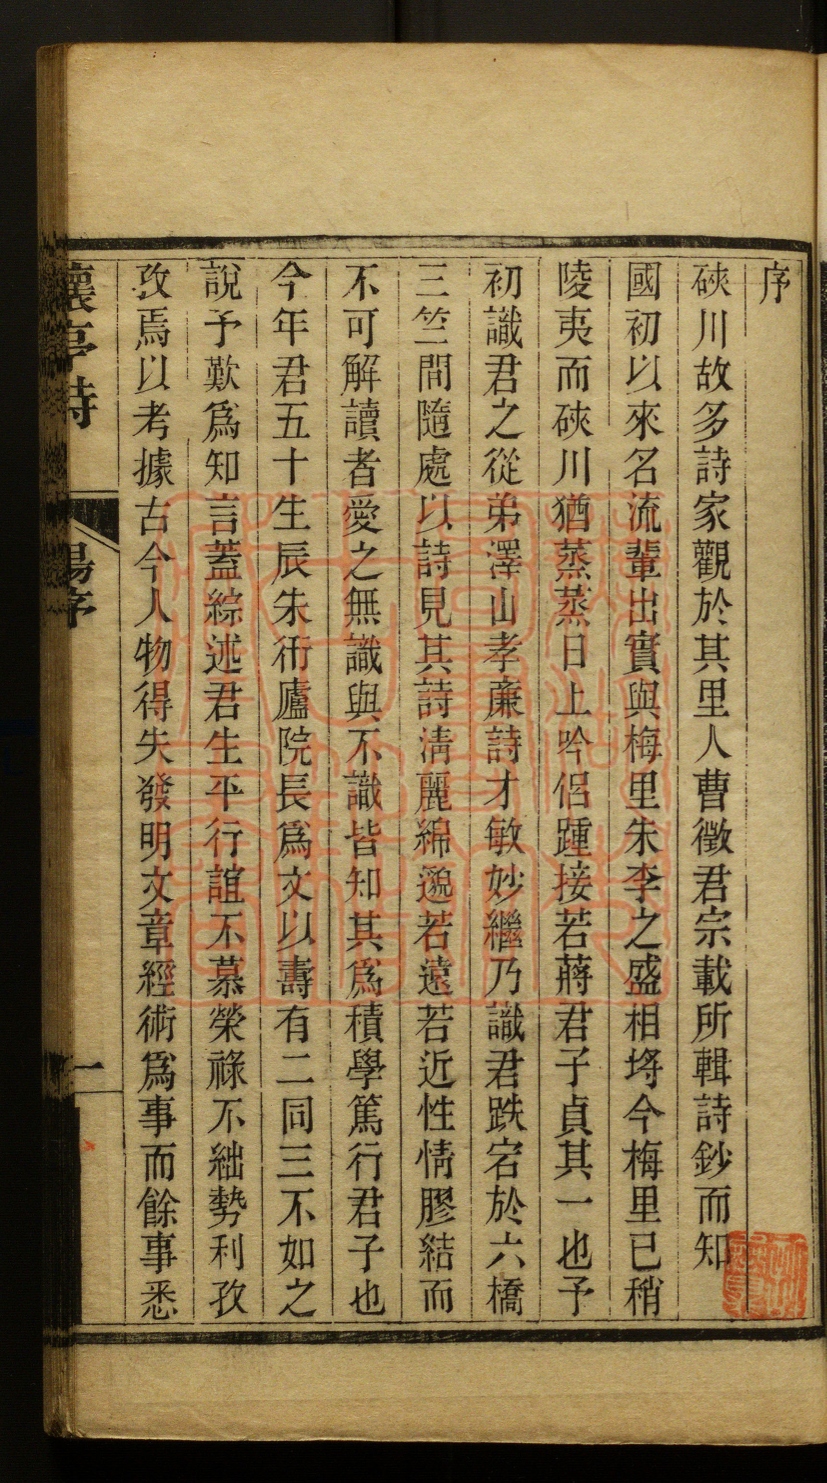 序
硤川故多詩家觀於其里人曹徵君宗載所輯詩鈔而知
國初以來名流輩出實與梅里朱李之盛相埒今梅里已稍
陵夷而硤川猶蒸蒸日上吟侶踵接若蔣君子貞其一也予
初識君之從弟澤山孝廉詩才敏妙繼乃識君跌宕於六橋
三竺間隨處以詩見其詩清麗綿邈若遠若近性情膠結而
不可解讀者愛之無識與不識皆知其爲積學篤行君子也
今年君五十生辰朱衎廬院長爲文以壽有二同三不如之
說予歎爲知言蓋綜述君生平行誼不慕榮祿不絀勢利孜
孜焉以考據古今人物得失發明文章經術爲事而餘事悉
懷亭詩
楊序
一